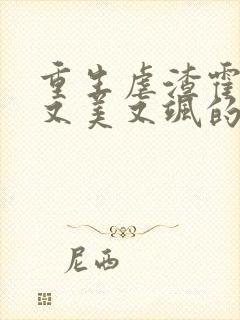 重生虐渣霍
又美又飒的
尼西